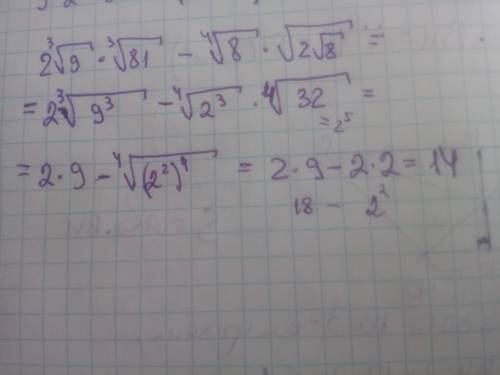 2∛9 · ∛81 − ∜8 · √(2√8) =
= 2∛(9³) − ∜(2³) · ∜32 =
= 2⁵
= 2·9 − ∜((2²)⁴) = 2·9 − 2·2 = 14
18 − 2²